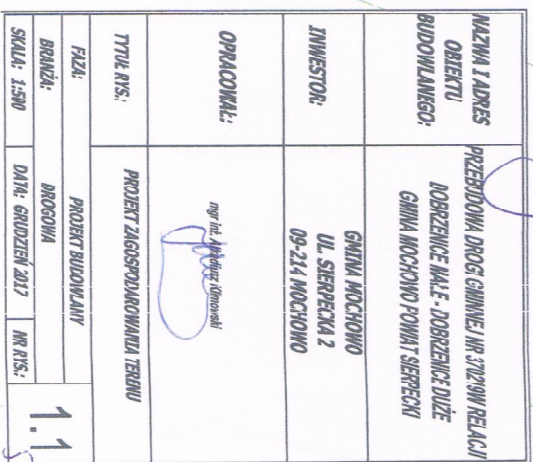 NAZWA I ADRES
OBIEKTU
BUDOWLANEGO:
PRZEBUDOWA DROGI GMINNEJ NR 370219W RELACJI
DOBRZENICE MAŁE - DOBRZENICE DUŻE
GMINA MOCHOWO POWIAT SIERPECKI
INWESTOR:
GMINA MOCHOWO
UL. SIERPECKA 2
09-214 MOCHOWO
OPRACOWAŁ:
mgr inż.
TYTUŁ RYS.:
PROJEKT ZAGOSPODAROWANIA TERENU
FAZA:
PROJEKT BUDOWLANY
BRANŻA:
DROGOWA
SKALA: 1:500
DATA: GRUDZIEŃ 2017
NR RYS.:
1.1